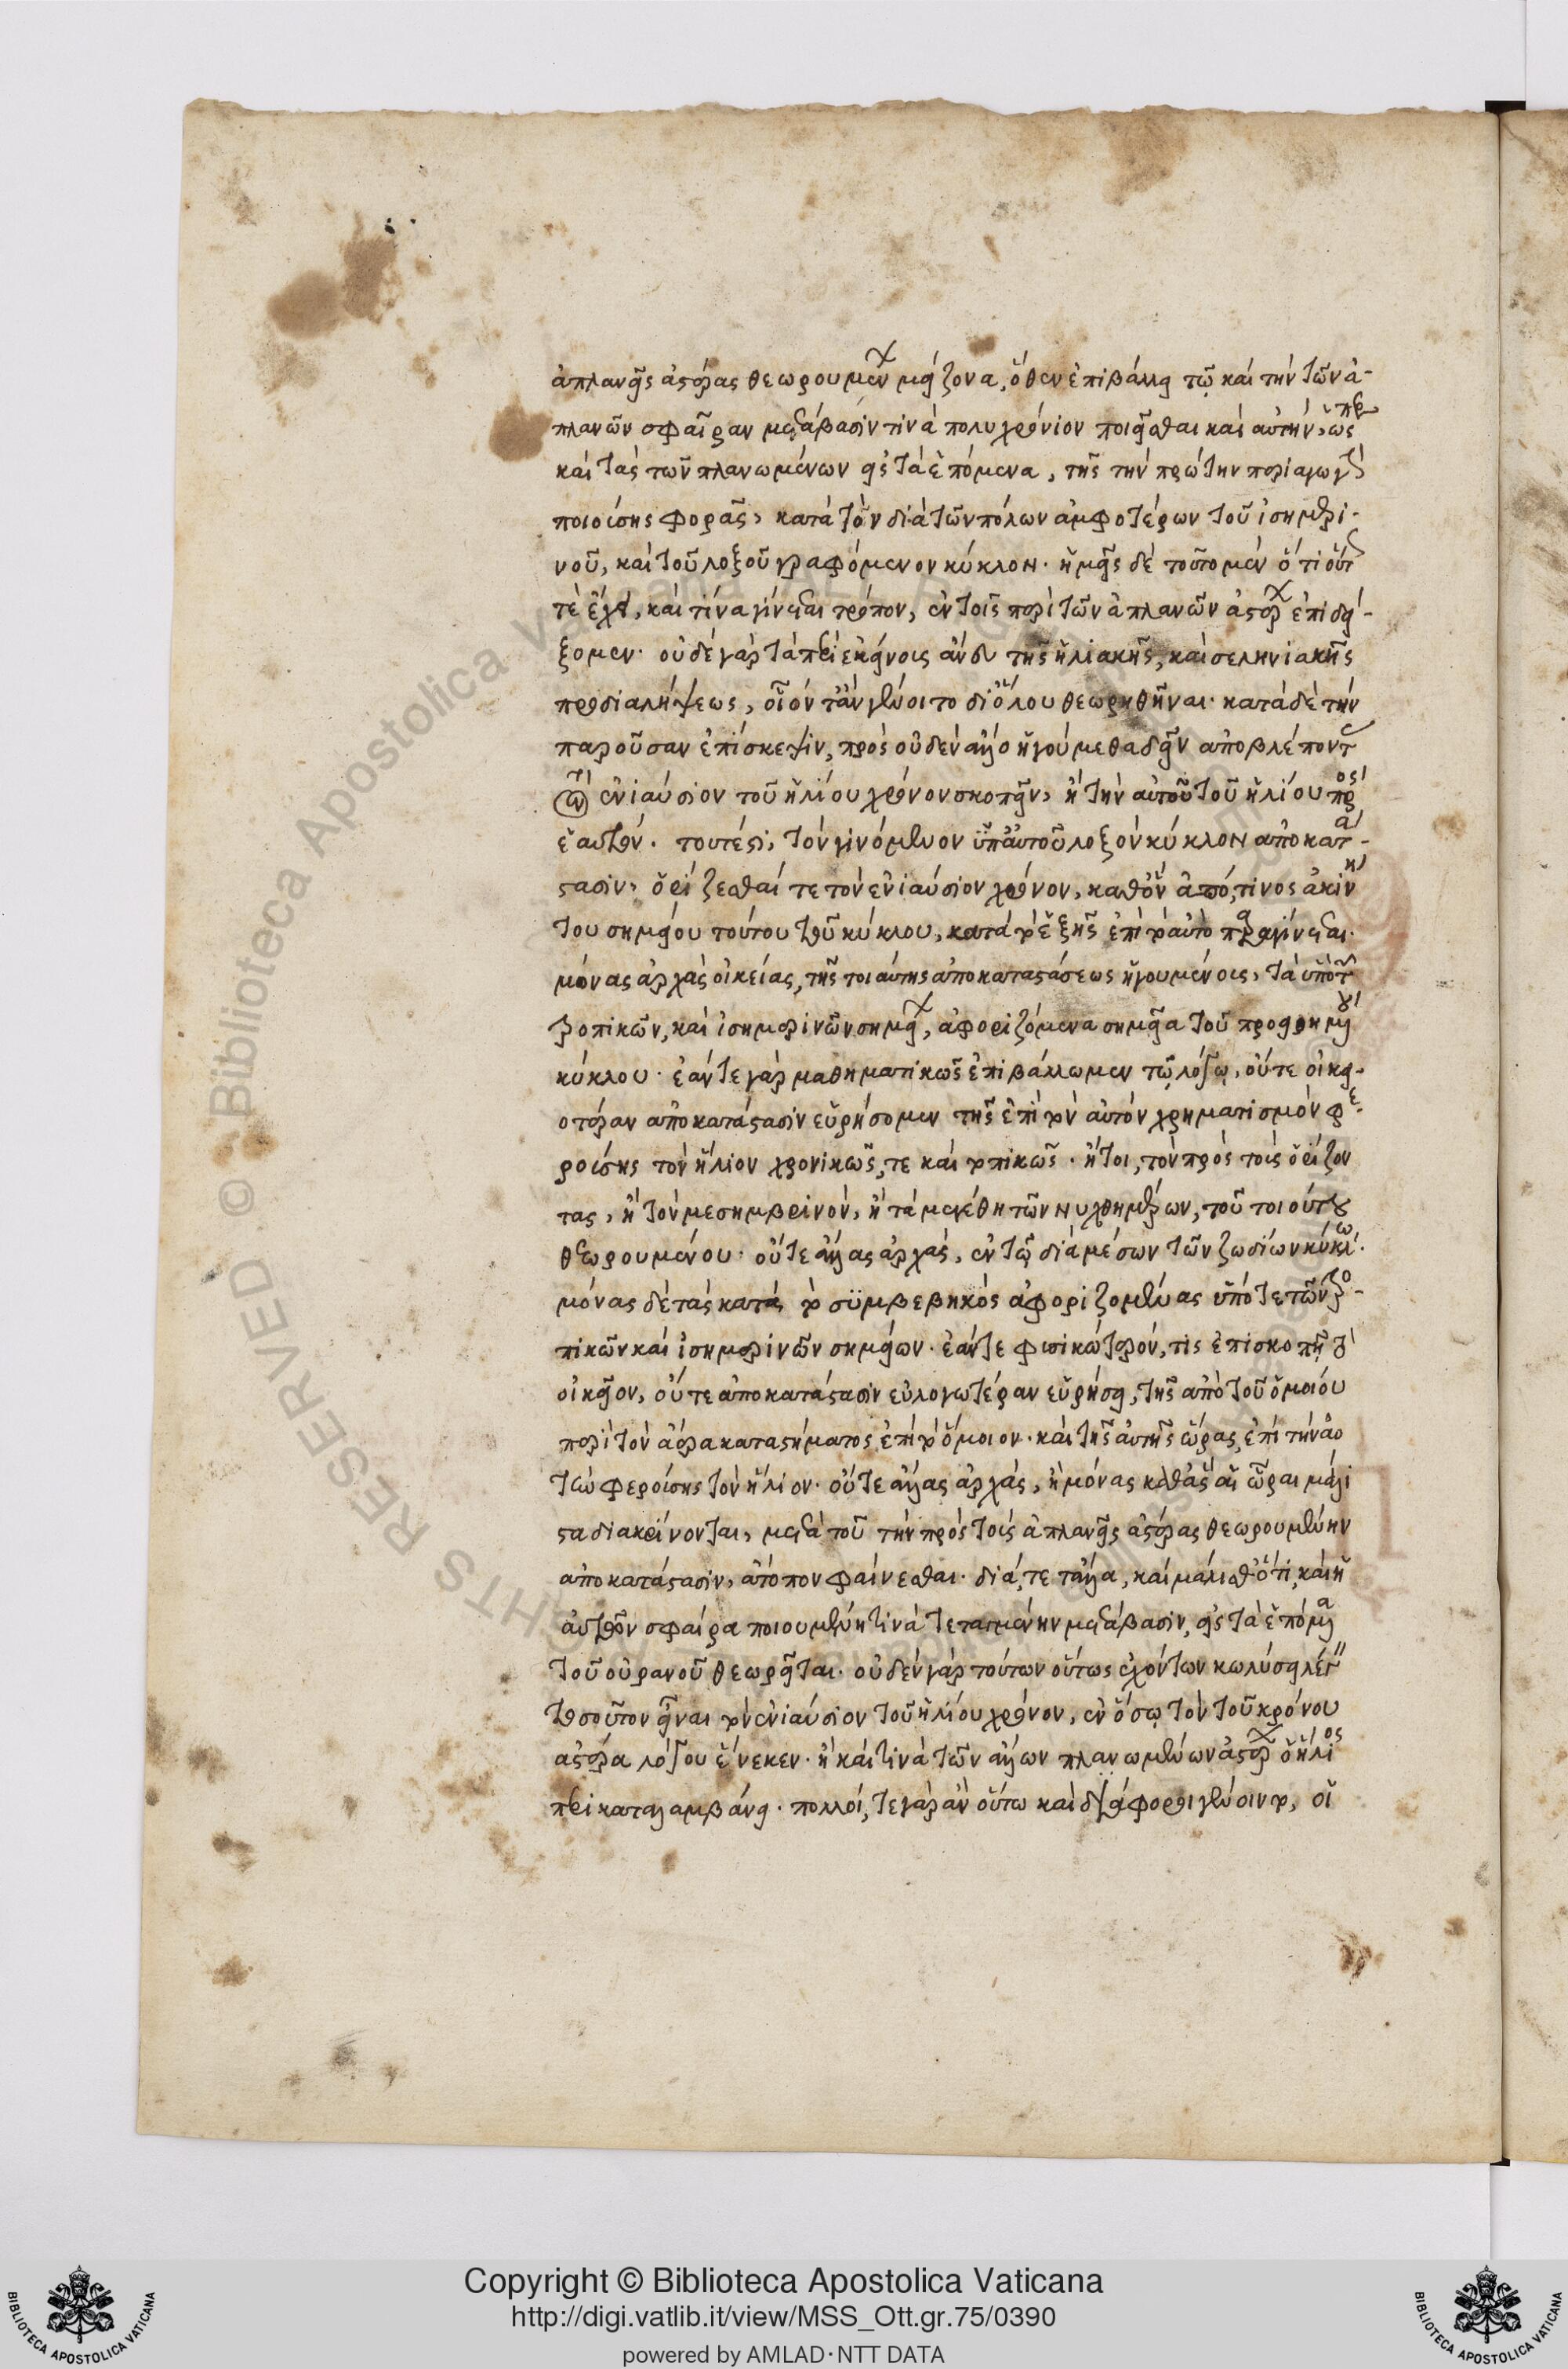 ἀπλανεῖς ἀστέρας θεωρουμένων μείζονα, ὅθεν ἐπιβάλλει τῷ καὶ τὴν τῶν ἀ-
πλανῶν σφαῖραν μετάβασίν τινα πολυχρόνιον ποιεῖσθαι καὶ αὐτὴν, ὥσπερ
καὶ τὰς τῶν πλανωμένων εἰς τὰ ἑπόμενα, τῆς τὴν πρώτην περιαγωγὴν
ποιούσης φορᾶς, κατὰ τὸν διὰ τῶν πόλων ἀμφοτέρων τοῦ ἰσημερι-
νοῦ, καὶ τοῦ λοξοῦ γραφόμενον κύκλον. ἡμεῖς δὲ τοῦτο μὲν ὅτι οὕτ
τὲ ἔχει, καὶ τίνα γίνεται τρόπον, ἐν τοῖς περὶ τῶν ἀπλανῶν ἀστέρων ἐπιδεί-
ξομεν. οὐδὲ γὰρ τὰ περὶ ἐκείνοις ἄνευ τῆς ἡλιακῆς, καὶ σεληνιακῆς
προδιαλήψεως, οἷόν τ ἂν γένοιτο διόλου θεωρηθῆναι. κατὰ δὲ τὴν
παροῦσαν ἐπίσκεψιν, πρὸς οὐδὲν ἄλλο ἡγούμεθα δεῖν ἀποβλέποντ
ἐνιαύσιον τοῦ ἡλίου χρόνον σκοπεῖν, ἢ τὴν αὐτοῦ τοῦ ἡλίου πρὸς
ἑαυτὸν. τουτέστι, τὸν γινόμενον ὑπ αὐτοῦ λοξὸν κύκλον ἀποκατά-
στασιν, ὁρίζεσθαί τε τὸν ἐνιαύσιον χρόνον, καθ ὃν ἀπό τινος ἀκινή
του σημείου τούτου τοῦ κύκλου, κατὰ τὸ ἑξῆς ἐπὶ τὸ αὐτὸ παραγίνεται.
μόνας ἀρχὰς οἰκείας, τῆς τοιαύτης ἀποκαταστάσεως ἡγουμένοις, τὰ ὑπὸ τῶν
τροπικῶν, καὶ ἰσημερινῶν σημείων, ἀφοριζόμενα σημεῖα τοῦ προειρημένου
κύκλου. ἐάν τε γὰρ μαθηματικῶς ἐπιβάλλωμεν τῷ λόγῳ, οὔτε οἰκει-
οτέραν ἀποκατάστασιν εὑρήσομεν τῆς ἐπὶ τὸν αὐτὸν χρηματισμὸν φε-
ρούσης τὸν ἥλιον χρονικῶς, τε καὶ τοπικῶς. ἤτοι, τὸν πρὸς τοὺς ὁρίζον
τας, ἢ τὸν μεσημβρινὸν, ἢ τὰ μεγέθη τῶν νυχθημέρων, τοῦ τοιούτου
θεωρουμένου. οὔτε ἄλλας ἀρχὰς, ἐν τῷ διὰ μέσων τῶν ζωδίων κύκλῳ.
μόνας δὲ τὰς κατὰ τὸ συμβεβηκὸς ἀφοριζομένας ὑπό τε τῶν τρο-
πικῶν καὶ ἰσημερινῶν σημείων. ἐάν τε φυσικώτερόν, τις ἐπισκοπῇ τὸ
οἰκεῖον, οὔτε ἀποκατάστασιν εὐλογωτέραν εὑρήσει, τῆς ἀπὸ τοῦ ὁμοίου
περὶ τὸν ἀέρα καταστήματος ἐπὶ τὸ ὅμοιον. καὶ τῆς αὐτῆς ὥρας, ἐπὶ τὴν αὐ
τὴν φερούσης τὸν ἥλιον. οὔτε ἄλλας ἀρχὰς, ἢ μόνας καθ ἃς αἱ ὧραι μάλι
στα διακρίνονται, μετὰ τοῦ τὴν πρὸς τοὺς ἀπλανεῖς ἀστέρας θεωρουμένην
ἀποκατάστασιν, ἄτοπον φαίνεσθαι. διά, τε τἄλλα, καὶ μάλισθ ὅτι, καὶ ἡ
αὐτῶν σφαίρα ποιουμένη τινὰ τεταγμένην μετάβασιν, εἰς τὰ ἑπόμενα
τοῦ οὐρανοῦ θεωρεῖται. οὐδὲν γὰρ τούτων οὕτως ἐχόντων κωλύσει λέγειν
τοσοῦτον εἶναι τὸν ἐνιαύσιον τοῦ ἡλίου χρόνον, ἐν ὅσῳ τὸν τοῦ κρόνου
ἀστέρα λόγου ἕνεκεν. ἢ καί τινα τῶν ἄλλων πλανωμένων ἀστέρων ὁ ἥλιος
περικαταλαμβάνει. πολλοί, τε γὰρ ἂν οὕτω καὶ διάφοροι γένοιντο, οἱ